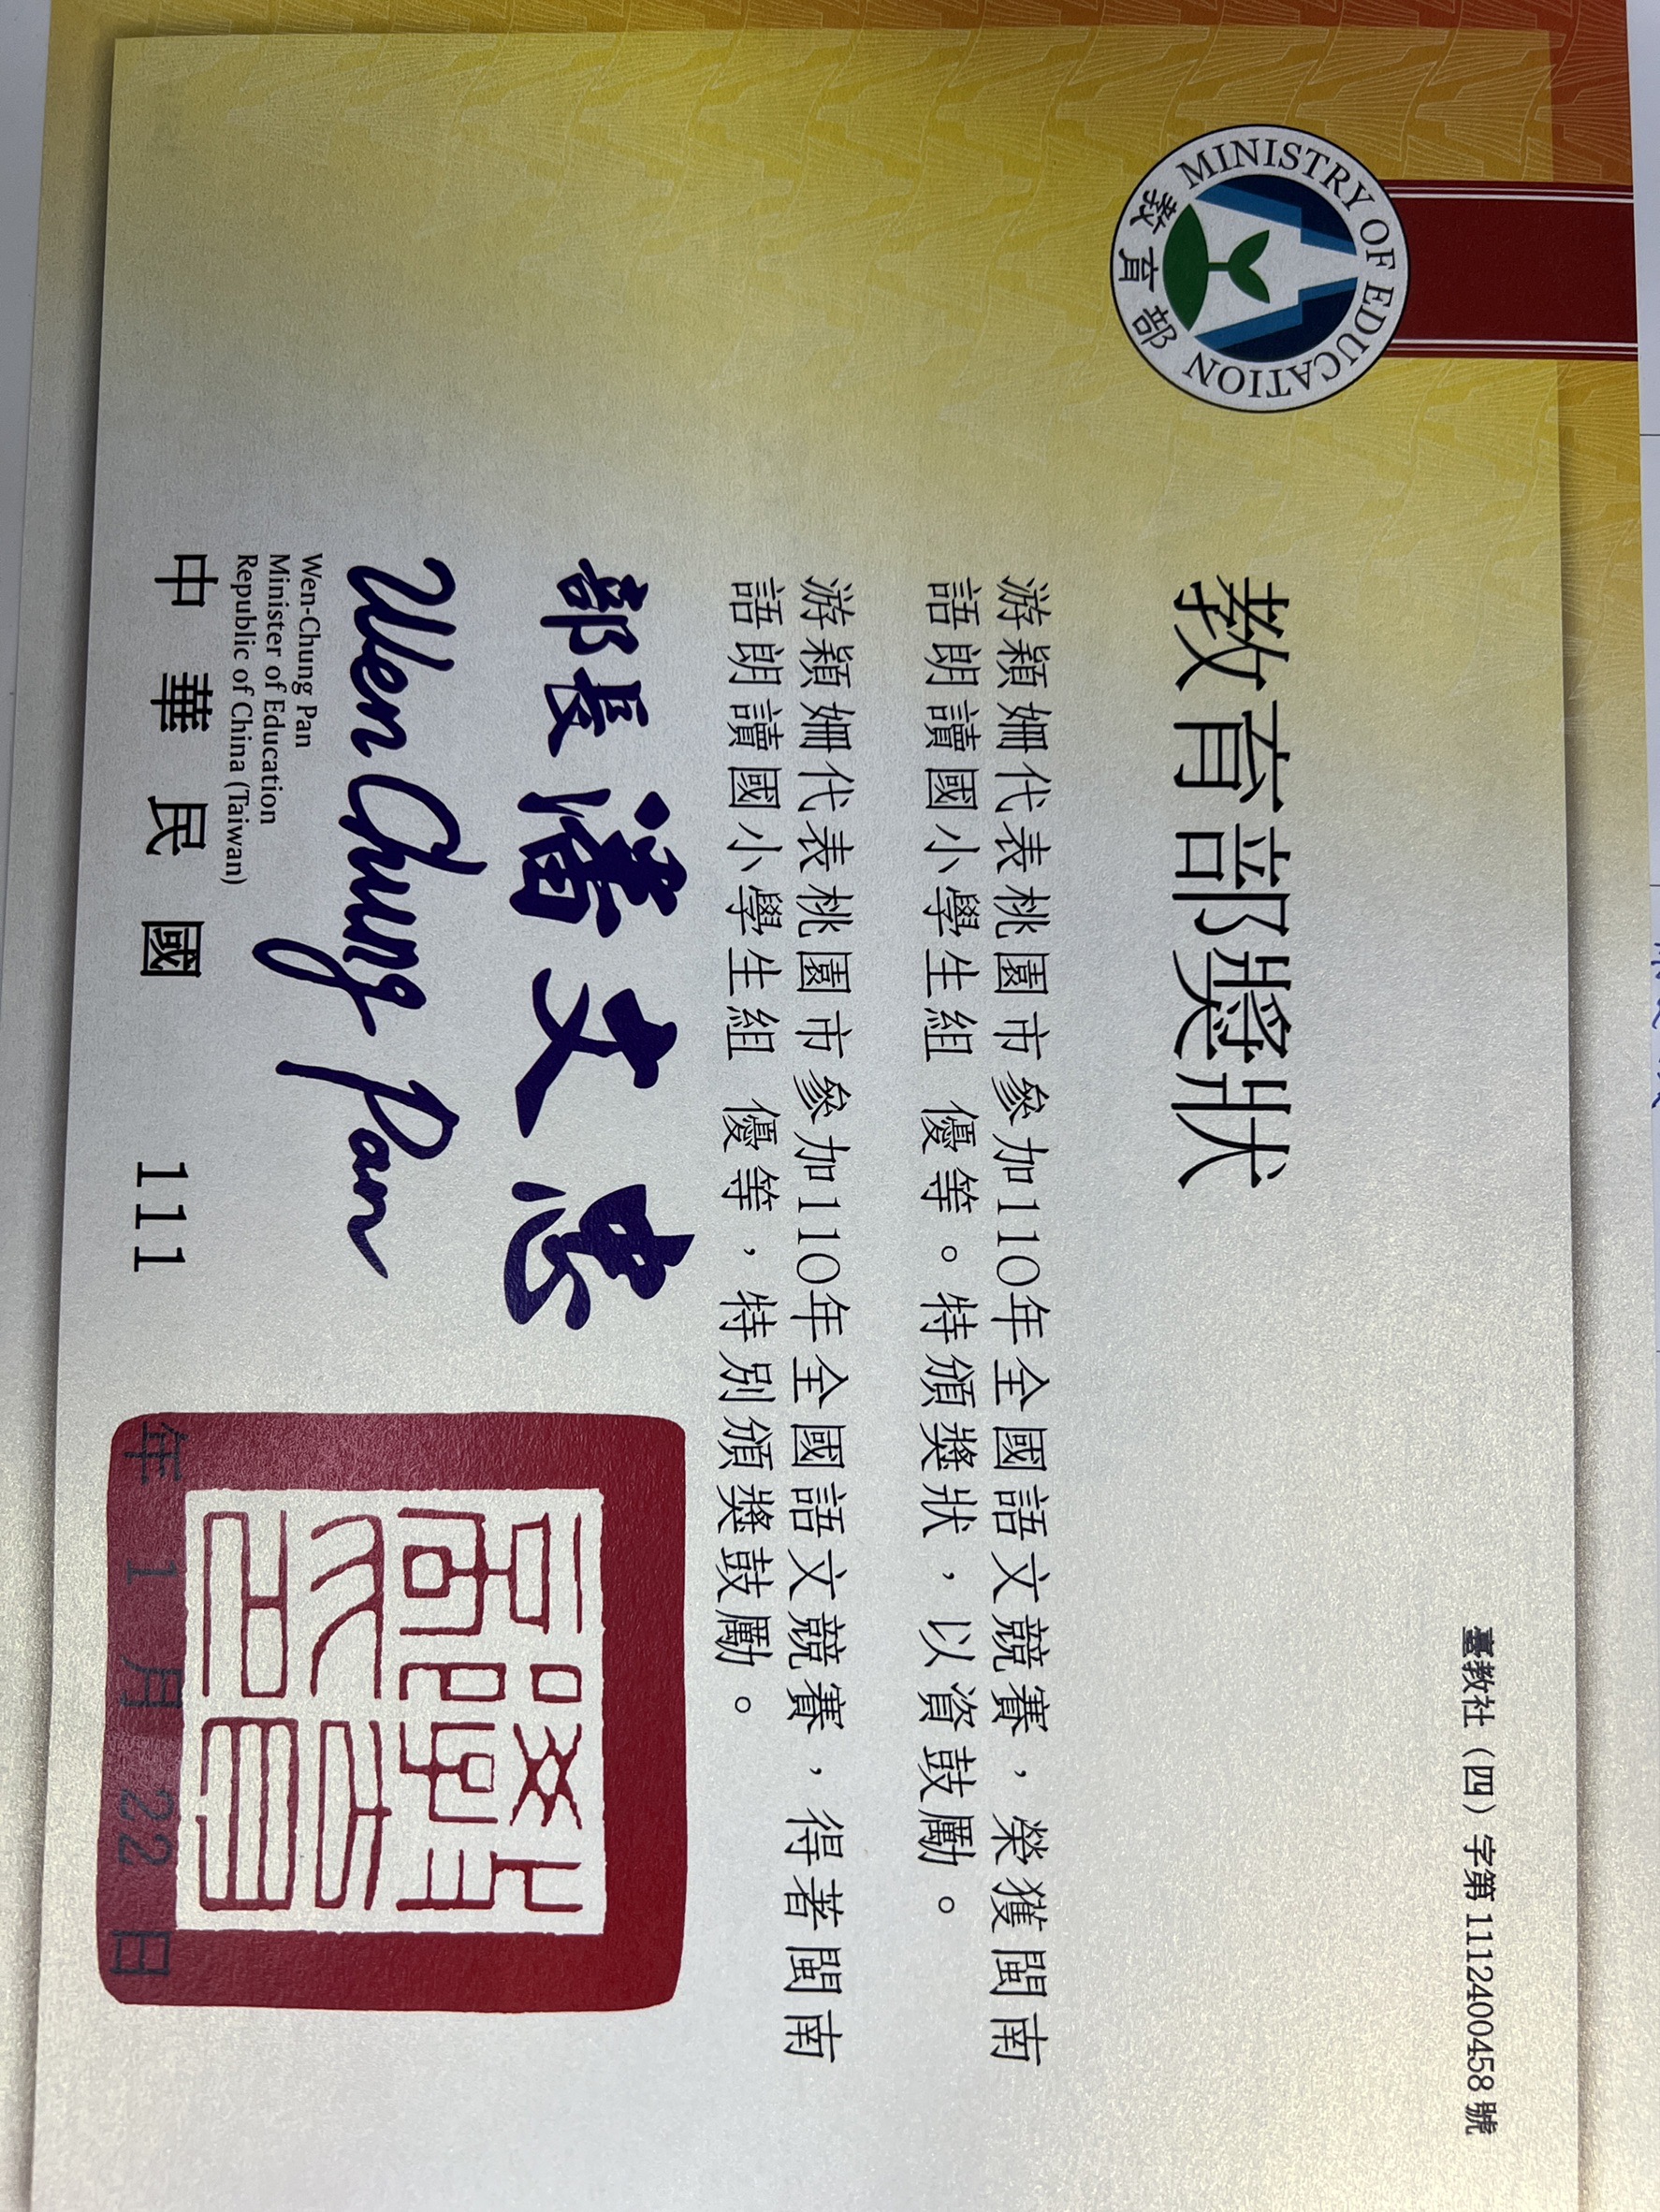 MINISTRY OF EDUCATION
教育部
臺教社（四）字第 1112400458 號
教育部獎狀
游穎姍代表桃園市參加110年全國語文競賽，榮獲閩南
語朗讀國小學生組 優等。特頒獎狀，以資鼓勵。
游穎姍代表桃園市參加110年全國語文競賽，得著閩南
語朗讀國小學生組 優等，特別頒獎鼓勵。
部長 潘文忠
Wen Chung Pan
Wen-Chung Pan
Minister of Education
Republic of China (Taiwan)
中華民國 111 年 1 月 22 日